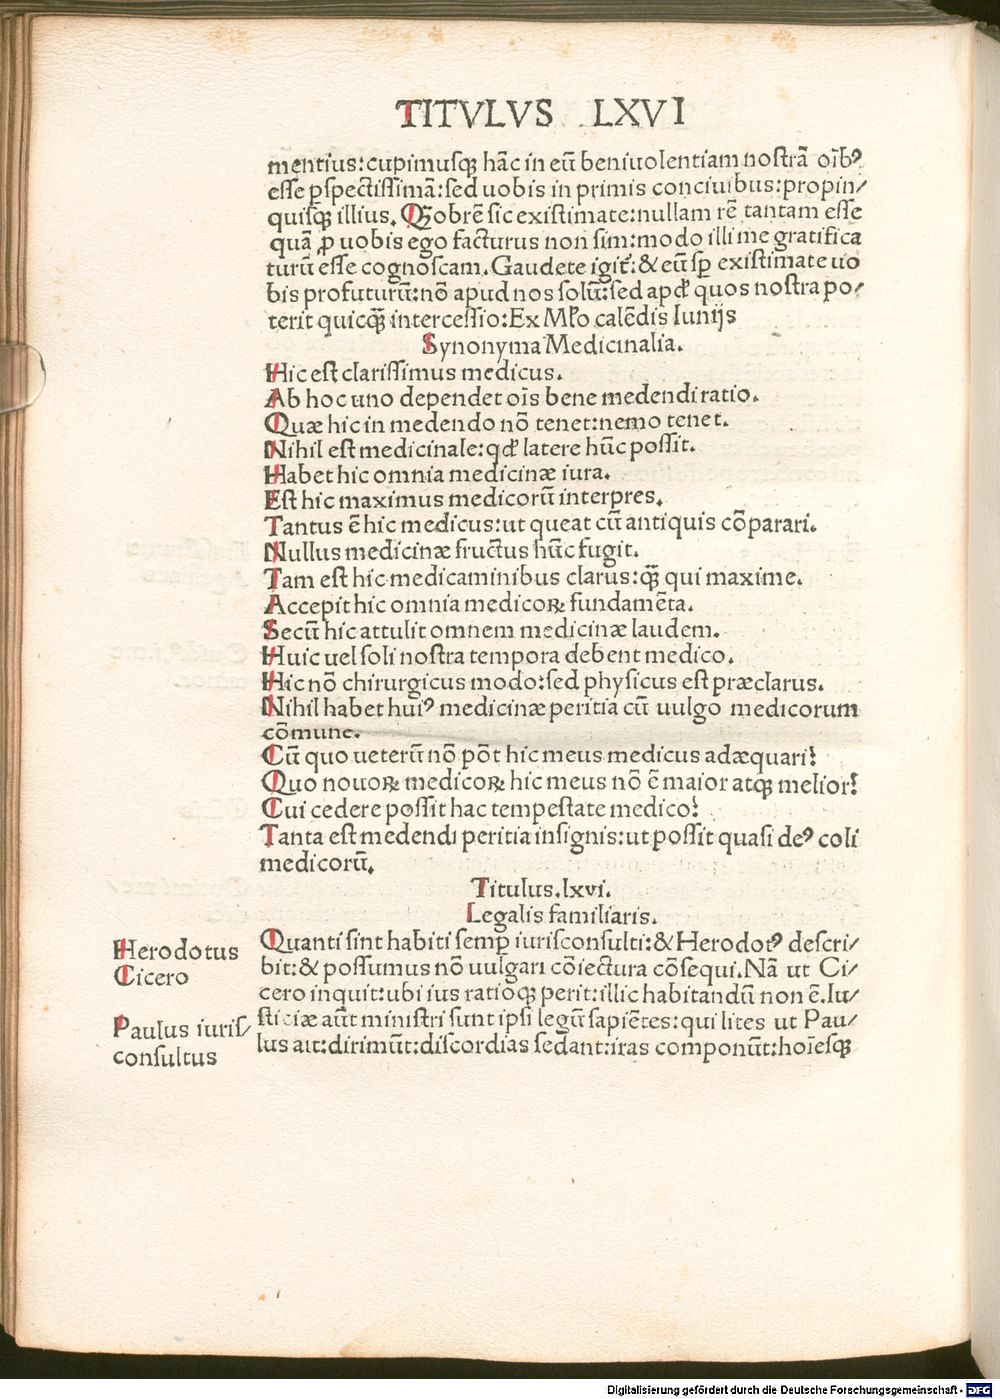 TITVLVS LXVI
mentius:cupimusꝗ hāc in eū beniuolentiam nostrā oīb⁹
esse ꝑspectissimā:sed uobis in primis conciuibus:propin/
quisꝗ illius. Q̄obrē sic existimate:nullam rē tantam esse
quā ꝓ uobis ego facturus non sim:modo illi me gratifica
turū esse cognoscam. Gaudete igit̄:& eū sꝑ existimate uo
bis profuturū:nō apud nos solū:sed apd̄ quos nostra po/
terit quicꝗ̄ intercessio:Ex Ml̄o calēdis Iunijs
Synonyma Medicinalia.
Hic est clarissimus medicus.
Ab hoc uno dependet oīs bene medendi ratio.
Quæ hic in medendo nō tenet:nemo tenet.
Nihil est medicinale:qd̄ latere hūc possit.
Habet hic omnia medicinæ iura.
Est hic maximus medicorū interpres.
Tantus ē hic medicus:ut queat cū antiquis cōparari.
Nullus medicinæ fructus hūc fugit.
Tam est hic medicaminibus clarus:ꝗ̄ qui maxime.
Accepit hic omnia medicoꝝ fundamēta.
Secū hic attulit omnem medicinæ laudem.
Huic uel soli nostra tempora debent medico.
Hic nō chirurgicus modo:sed physicus est præclarus.
Nihil habet hui⁹ medicinæ peritia cū uulgo medicorum
cōmune.
Cū quo ueterū nō pōt hic meus medicus adæquari?
Quo nouoꝝ medicoꝝ hic meus nō ē maior atꝗ melior?
Cui cedere possit hac tempestate medico?
Tanta est medendi peritia insignis:ut possit quasi de⁹ coli
medicorū.
Titulus.lxvi.
Legalis familiaris.
Quanti sint habiti semꝑ iurisconsulti:& Herodot⁹ descri/
bit:& possumus nō uulgari cōiectura cōsequi. Nā ut Ci/
cero inquit:ubi ius ratioꝗ perit:illic habitandū non ē. Iu/
sticiæ aūt ministri sunt ipsi legū sapiētes:qui lites ut Pau/
lus ait:dirimūt:discordias sedant:iras componūt:hoīesꝗ
Herodotus
Cicero
Paulus iuris/
consultus
Digitalisierung gefördert durch die Deutsche Forschungsgemeinschaft - DFG